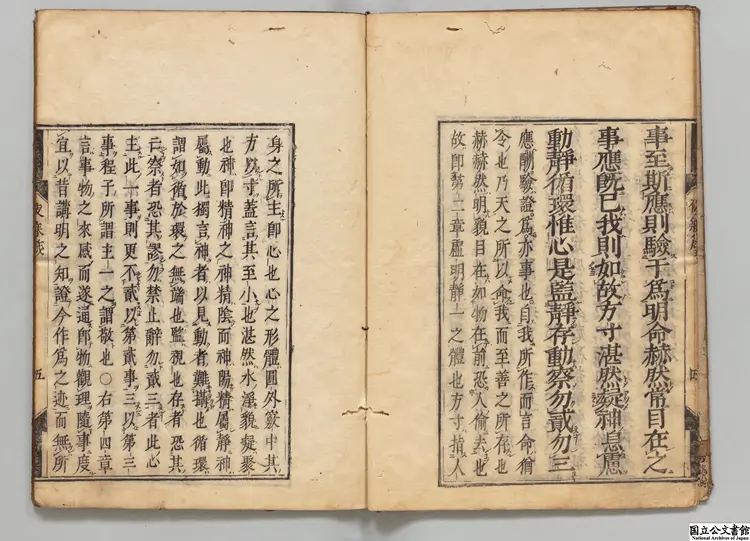 事至斯應則驗于爲明命赫然常目在之
事應既已我則如故方寸湛然凝神息慮
動靜循環惟心是監靜存動察勿貳勿三
應酬驗證爲亦事也自我所作而言命猶
令也乃天之所以命我而至善之所存也
赫赫然明貌目在如物在前恐人偷去也
故即第二章虛明靜一之體也方寸指人
身之所主即心也心之形體圓外竅中其
方以寸蓋言其至小也湛然水淫貌凝聚
也神即精神之神精陰而神陽精屬靜神
屬動此獨言神者以見動者難攝也循環
謂如循於環之無端也監視也存者恐其
亡察者恐其謬勿禁止辭勿貳三者此心
主此一事則更不貳以第貳事三以第三
事程子所謂主一之謂敬也○右第四章
言事物之來感而遂通即物觀理隨事度
宜以昔講明之知證今作爲之迹而無所
五
国立公文書館
National Archives of Japan